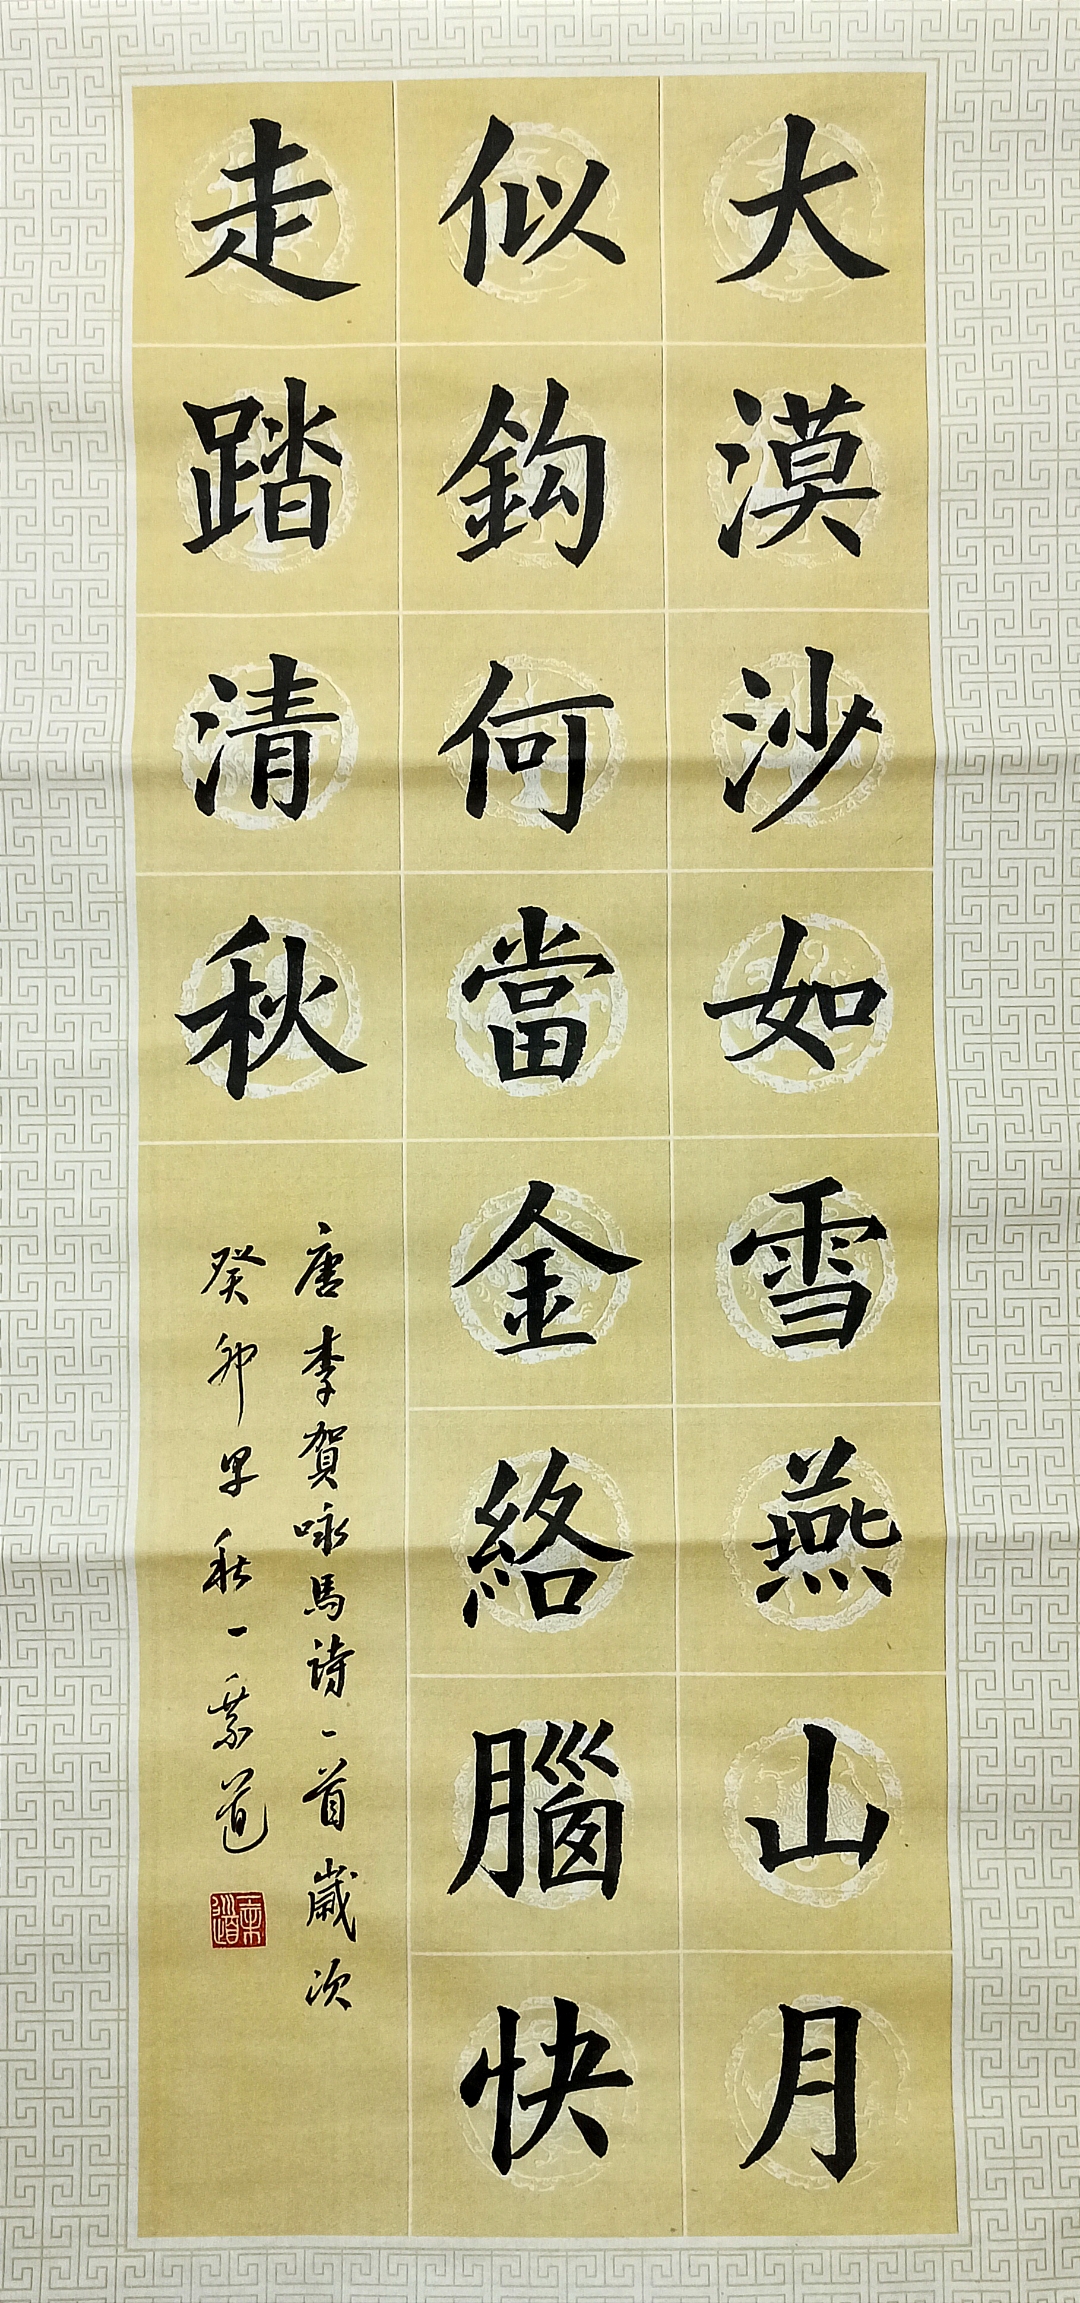 大漠沙如雪燕山月
似鈎何當金絡腦快
走踏清秋
唐李賀咏馬詩一首歲次
癸卯早秋一葉道